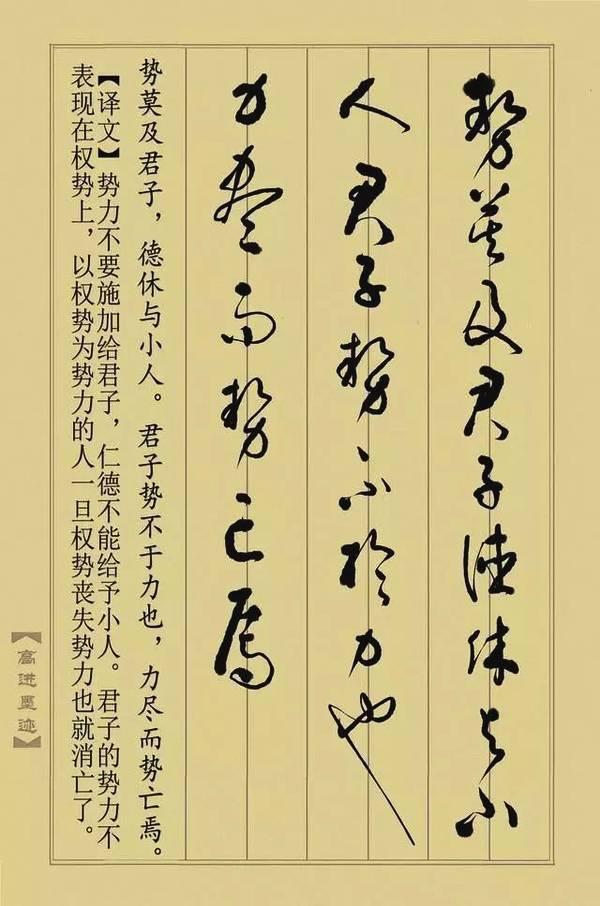 势莫及君子德休与小
人君子势不于力也
力尽而势亡焉
势莫及君子，德休与小人。君子势不于力也，力尽而势亡焉。
【译文】势力不要施加给君子，仁德不能给予小人。君子的势力不
表现在权势上，以权势为势力的人一旦权势丧失势力也就消亡了。
【高进墨迹】